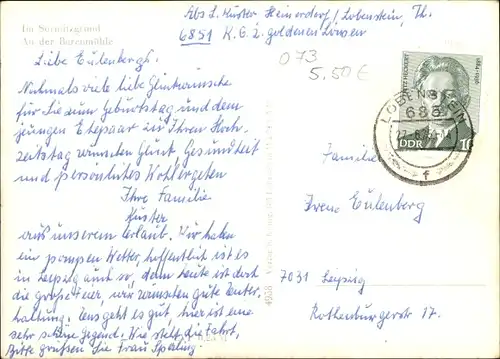 Im Sormitzgrund
An der Bärenmühle
Abs L. Kuster Heinersdorf / Lobenstein, Th.
6851 K.G. Z. goldenen Löwen
073
5,50 €
Liebe Eulenbergs.
Nochmals viele liebe Glückwünsche
für Sie zum Geburtstag und dem
jungen Ehepaar in Ihren Hoch-
zeitstag wünschen Glück, Gesundheit
und persönliches Wohlergehen
Ihre Familie
Kuster
aus unserem Urlaub. Wir haben
ein Wetter, hoffentlich ist es
in Leipzig auch so, denn heute ist dort
die große Feier, wir wünschten gute Unter-
haltung. Uns geht es gut, hier ist eine
sehr schöne Gegend. Wie die Fahrt,
Bitte grüßen Sie Frau
LOBENSTEIN
685
f
DDR
10
Familie
Irene Eulenberg
7031 Leipzig
Rothenburgerstr 17.